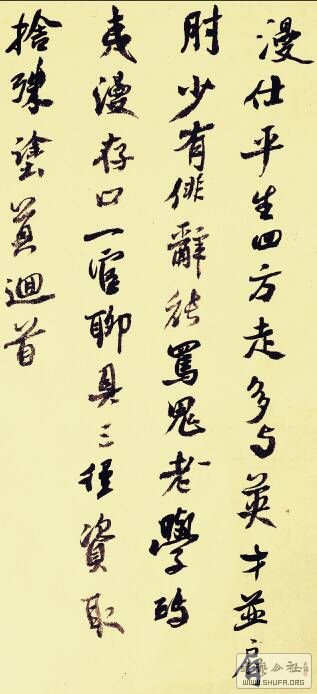 漫仕平生四方走多与英才並肩
肘少有俳辭能罵鬼老學鴟
夷漫存口一官聊具三径資取
捨殊塗莫迴首
WWW.SHUFA.ORG